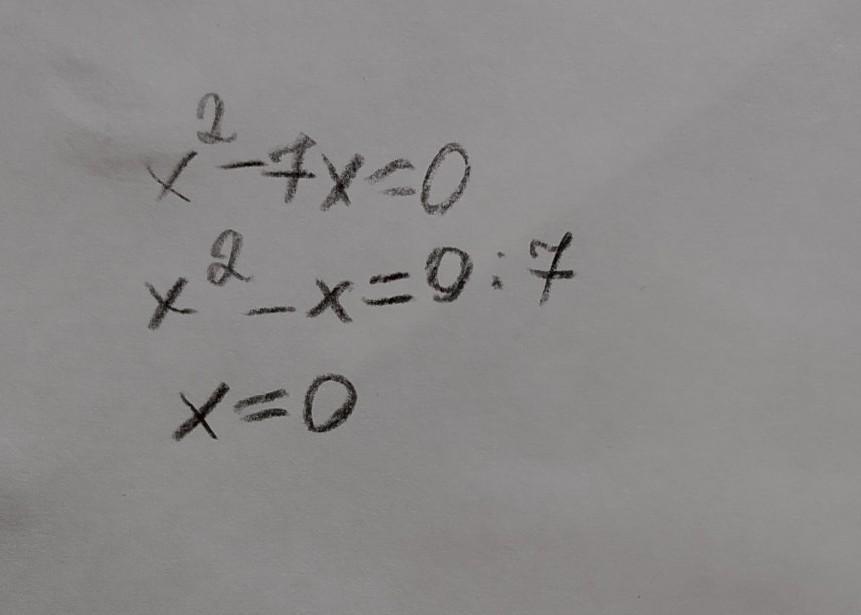 x² - 7x = 0
x² - x = 0 : 7
x = 0